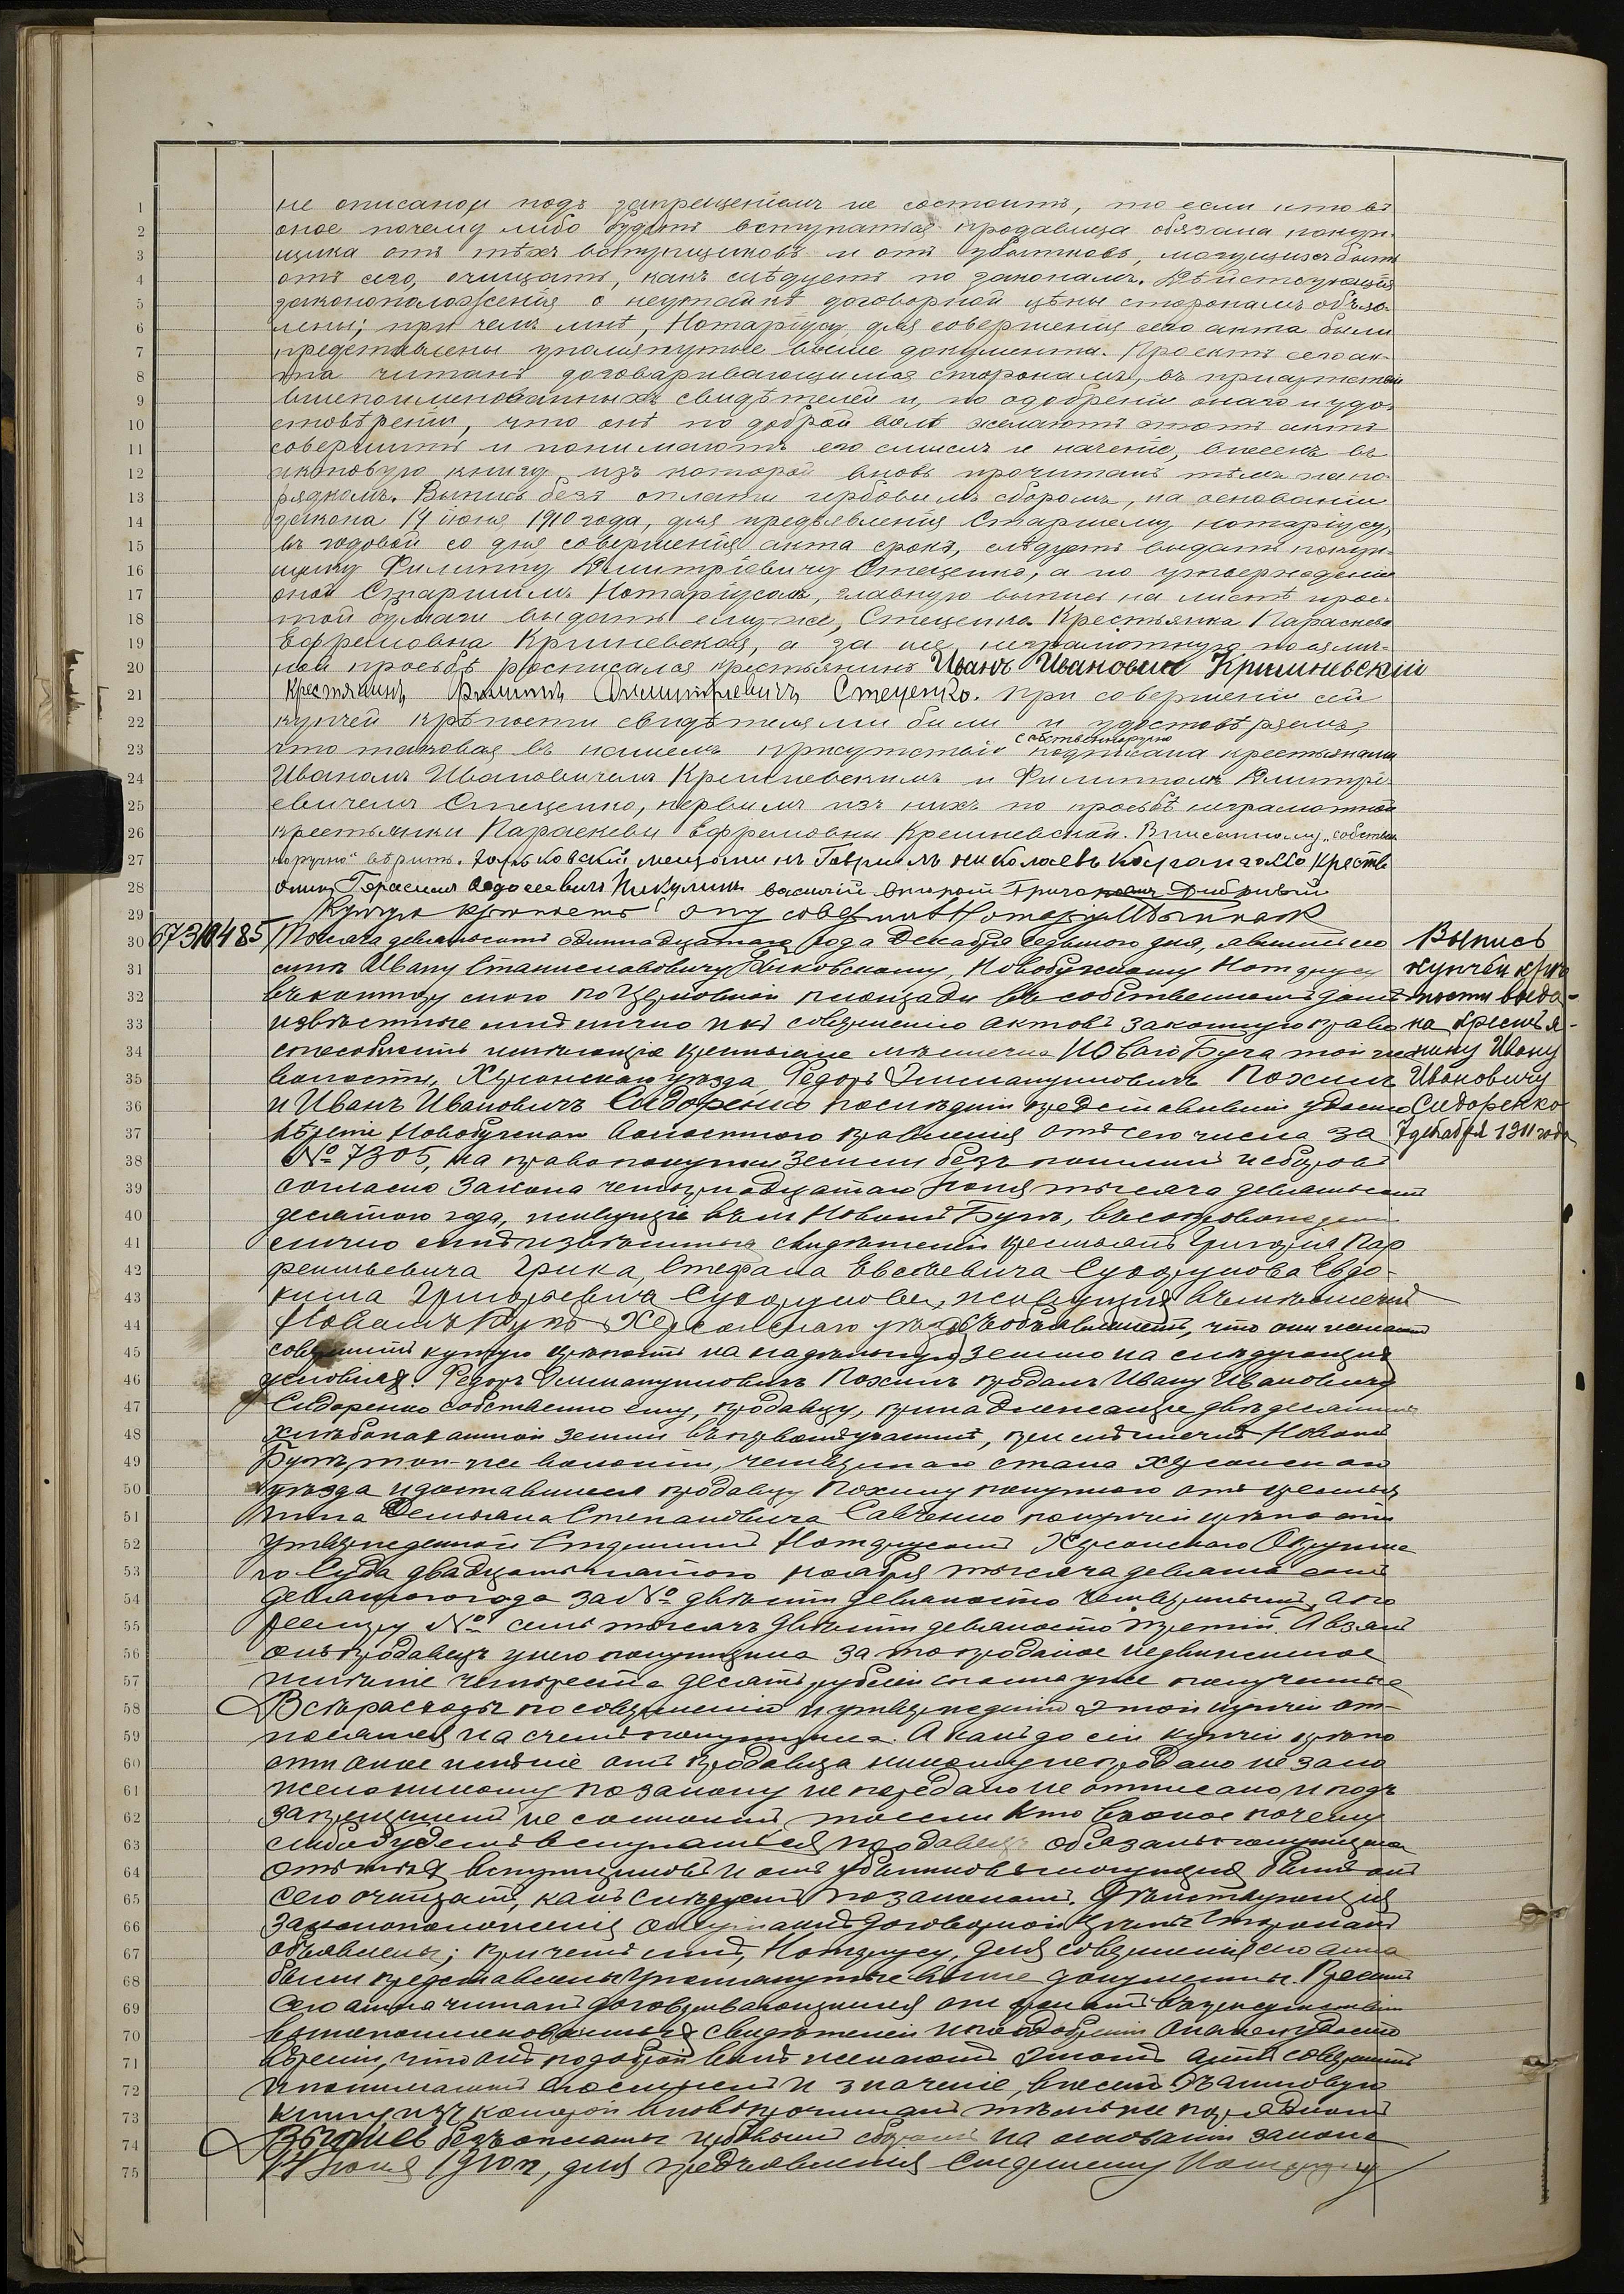 1 не описаном подъ запрещеніемъ не состоитъ, то если кто въ
2 оное почему либо будетъ вступаться продавица обязана покуп-
3 щика отъ тѣхъ вступщиковъ и отъ убытковъ, могущихъ быть
4 отъ сего, очищать, какъ слѣдуетъ по законамъ. Дѣйствующія
5 законоположенія о неустойкѣ договорной цѣны сторонамъ объяв-
6 лены; при чемъ мнѣ, Нотаріусу, для совершенія сего акта были
7 представлены упомянутые выше документы. Проектъ сего ак-
8 та читанъ договаривающимся сторонамъ, въ присутствіи
9 вышепоименованныхъ свидѣтелей и, по одобреніи онаго и удо-
10 стовѣреніи, что онѣ по доброй волѣ желаютъ этотъ актъ
11 совершить и понимаютъ его смыслъ и наченіе, внесенъ въ
12 актовую книгу, изъ которой вновь прочитанъ тѣмъ же по-
13 рядкомъ. Выпись безъ оплаты гербовымъ сборомъ, на основаніи
14 закона 14 іюня 1910 года, для предъявленія Старшему нотаріусу,
15 въ годовой со дня совершенія акта срокъ, слѣдуетъ выдать покуп-
16 щику Филиппу Дмитріевичу Стеценко, а по утвержденіи
17 оной Старшимъ Нотаріусомъ, главную выпись на листѣ прос-
18 той бумаги выдать ему же, Стеценко. Крестьянка Параскева
19 Ефремовна Кришневская, а за нее неграмотную по ея лич-
20 ной просьбѣ росписался крестьянинъ Иванъ Ивановичъ Кришневскій
21 Крестянинъ Филиппъ Димитріевичъ Стеценко. При совершеніи сей
22 купчей крѣпости свидѣтелями были и удостовѣряемъ,
23 что таковая въ нашемъ присутствіи собственноручно подписана крестьянами
24 Иваномъ Ивановичемъ Кришневскимъ и Филиппомъ Дмитрі-
25 евичемъ Стеценко, первымъ изъ нихъ по просьбѣ неграмотной
26 крестьянки Параскевы Ефремовны Кришневской. Вписанному "собствен
27 норучно" вѣрить. мещанинъ Гавріилъ Николаевъ Кре
28 Герасимъ Федосеевичъ Никулинъ Василій
29 Купчую крѣпость сію совершилъ Нотаріусъ
30 67 310 485 Тысяча девятьсотъ одиннадцатаго года Декабря седьмого дня, явились ко
31 мнѣ Ивану Станиславовичу Быковскому, Новобугскому Нотаріусу
32 въ контору мою по Церковной площади въ собственномъ домѣ
33 извѣстные мнѣ лично и къ совершенію актовъ законную право
34 способность имѣющіе крестьяне мѣстечка Новаго Буга той же
35 волости, Херсонскаго уѣзда Федоръ Эммануиловичъ Похилъ
36 и Иванъ Ивановичъ Сидоренко послѣдній представившій удосто
37 вѣреніе Новобугскаго Волостного правленія отъ сего числа за
38 № 7305, на право покупки земли безъ пошлинъ и сборовъ
39 согласно закона четырнадцатаго іюня тысяча девятьсотъ
40 десятаго года, живущіе въ м Новомъ Бугѣ, въ сопровожденіи
41 лично мнѣ извѣстныхъ свидѣтелей крестьянъ Григорія Пар
42 фентьевича Грика, Стефана Евсѣевича Сухорукова Евдо-
43 кима Григорьевича Сухорукова, живущихъ въ мѣстечкѣ
44 Новомъ Бугѣ Херсонскаго уѣзда съ объявленіемъ, что они желаютъ
45 совершить купчую крѣпость на надѣльную землю на слѣдующихъ
46 условіяхъ. Федоръ Эммануиловичъ Похилъ продалъ Ивану Ивановичу
47 Сидоренко собственно ему, продавцу, принадлежащія двѣ десятины
48 хлѣбопахатной земли въ первомъ участкѣ, при мѣстечкѣ Новомъ
49 Бугѣ, той-же волости, четвертаго стана Херсонскаго
50 уѣзда и доставшіеся продавцу Похилу покупкою отъ крестья
51 нина Демьяна Степановича Савченко по купчей крѣпости
52 утвержденной Старшимъ Нотаріусомъ Херсонскаго Окружна
53 го Суда двадцать пятаго ноября тысяча девятьсотъ
54 девятаго года за № двѣсти девяносто четвертымъ, а по
55 реестру № семь тысячъ двѣсти девяносто третій. А взялъ
56 онъ продавецъ у него покупщика за то проданое недвижимое
57 имѣніе четыреста десять рублей сполна уже полученные
58 Всѣ расходы по совершенію и утвержденію этой купчей от-
59 носятся на счетъ покупщика. А какъ до сей купчей крѣпо
60 сти оное имѣніе отъ продавца никому не продано не зало
61 жено никому по закону не передано не отписано и подъ
62 запрещеніемъ не состоитъ, то если кто въ оное почему
63 либо будетъ вступаться продавецъ обязанъ покупщика
64 отъ тѣхъ вступщиковъ и отъ убытковъ могущихъ быть отъ
65 сего очищать, какъ слѣдуетъ по законамъ. Дѣйствующія
66 законоположенія о неустойкѣ договорной цѣны сторонамъ
67 объявлены; при чемъ мнѣ, Нотаріусу, для совершенія сего акта
68 были представлены упомянутые выше документы. Проектъ
69 сего акта читанъ договаривающимся сторонамъ въ присутствіи
70 вышепоименованныхъ свидѣтелей и по одобреніи онаго и удосто
71 вѣреніи, что они по доброй волѣ желаютъ этотъ актъ совершить
72 и понимаютъ его смыслъ и значеніе, внесенъ въ актовую
73 книгу изъ которой вновь прочитанъ тѣмъ же порядкомъ
74 Выпись безъ оплаты гербовымъ сборомъ на основаніи закона
75 14 іюня 1910 г, для предъявленія Старшему Нотаріусу
Выпись
купчей крѣ
пости выда-
на крестья-
нину Ивану
Ивановичу
Сидоренко
7 декабря 1911 года